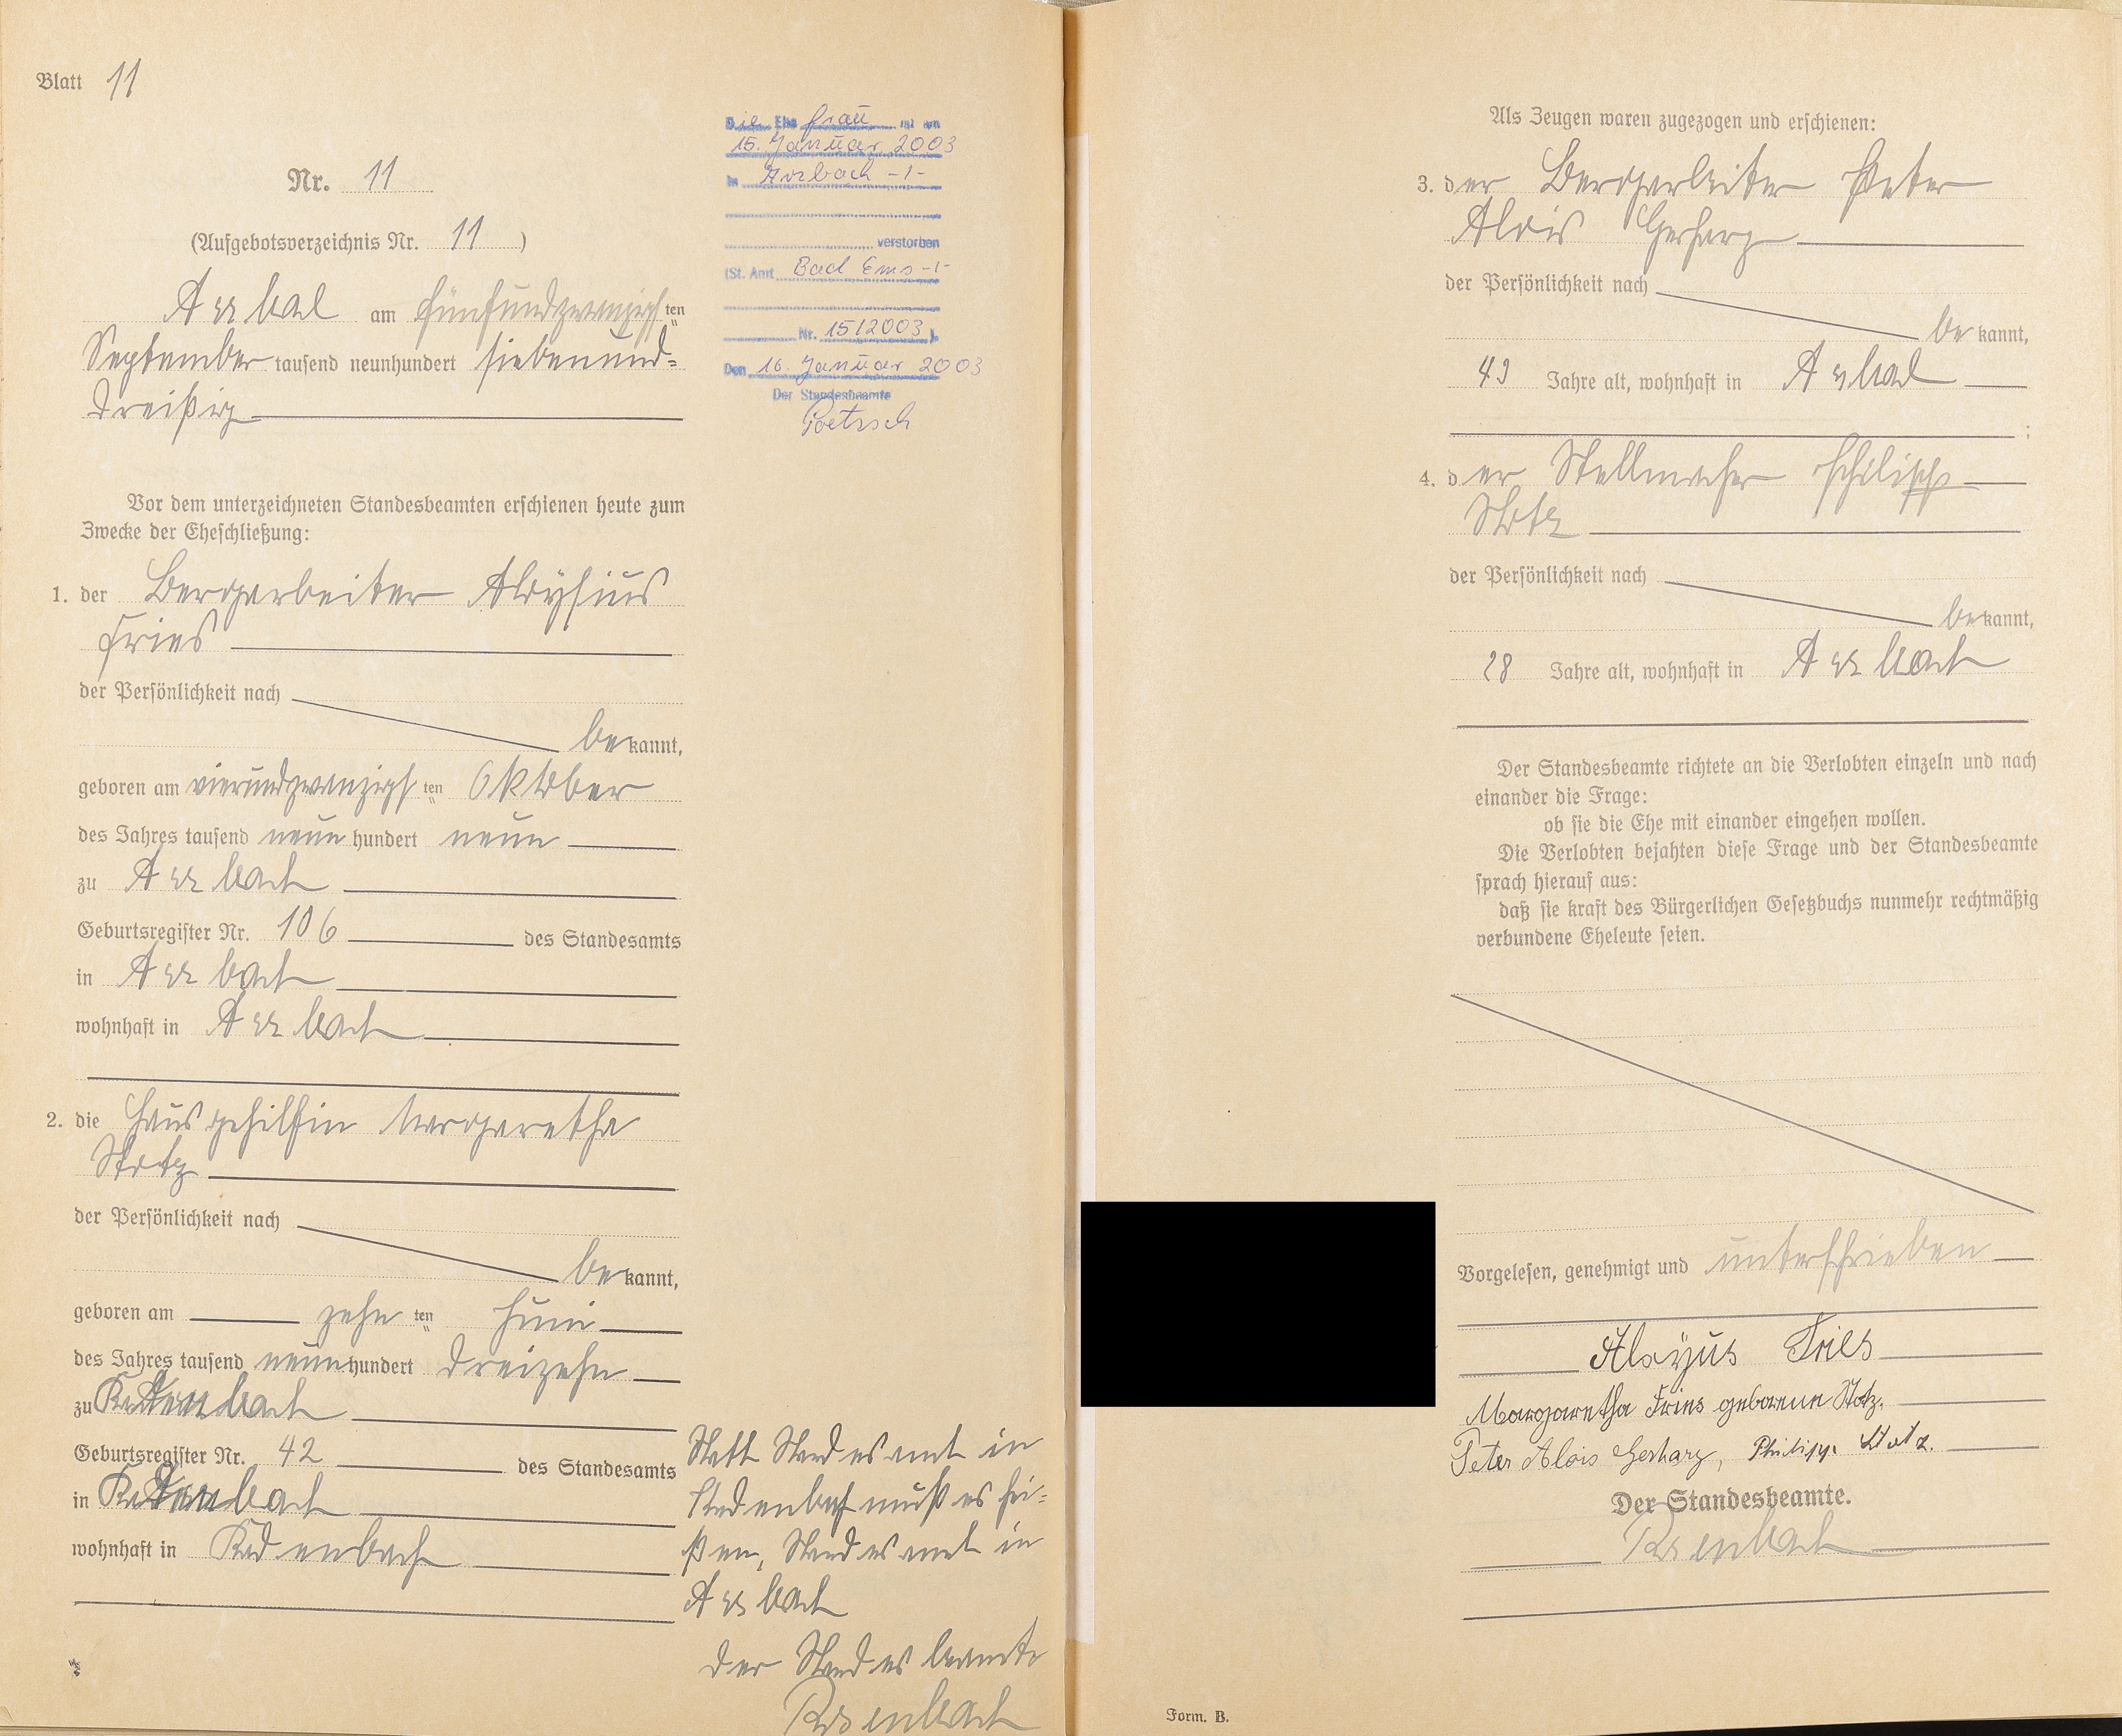 Blatt 11
Nr. 11
(Aufgebotsverzeichnis Nr. 11 )
Arzbach am fünfundzwanzigsten
September tausend neunhundert siebenund-
dreißig
Vor dem unterzeichneten Standesbeamten erschienen heute zum
Zwecke der Eheschließung:
1. der Bergarbeiter Aloysius
Fries
der Persönlichkeit nach
bekannt,
geboren am vierundzwanzigsten Oktober
des Jahres tausend neunhundert neun
zu Arzbach
Geburtsregister Nr. 106 des Standesamts
in Arzbach
wohnhaft in Arzbach
2. die Hausgehilfin Margaretha
Stotz
der Persönlichkeit nach
bekannt,
geboren am zehnten Juni
des Jahres tausend neunhundert dreizehn
zu Kadenbach
Geburtsregister Nr. 42 des Standesamts
in Kadenbach
wohnhaft in Kadenbach
Die Ehefrau ist am
15. Januar 2003
in Arzbach -/-
verstorben
(St. Amt Bad Ems -/-
Nr. 15/2003 ).
Den 16. Januar 2003
Der Standesbeamte
Statt Standesamt in
Kadenbach muß es hei-
ßen, Standesamt in
Arzbach
Der Standesbeamte
Als Zeugen waren zugezogen und erschienen:
3. der Bergarbeiter Peter
Alois Gerharz
der Persönlichkeit nach
bekannt,
43 Jahre alt, wohnhaft in Arzbach
;
4. der Stellmacher Philipp
Stotz
der Persönlichkeit nach
bekannt,
28 Jahre alt, wohnhaft in Arzbach
Der Standesbeamte richtete an die Verlobten einzeln und nach
einander die Frage:
ob sie die Ehe mit einander eingehen wollen.
Die Verlobten bejahten diese Frage und der Standesbeamte
sprach hierauf aus:
daß sie kraft des Bürgerlichen Gesetzbuchs nunmehr rechtmäßig
verbundene Eheleute seien.
Vorgelesen, genehmigt und unterschrieben
Aloÿus Fries
Margaretha Fries geborene Stotz.
Peter Alois Gerharz, Philipp Stotz.
Der Standesbeamte.
Form. B.